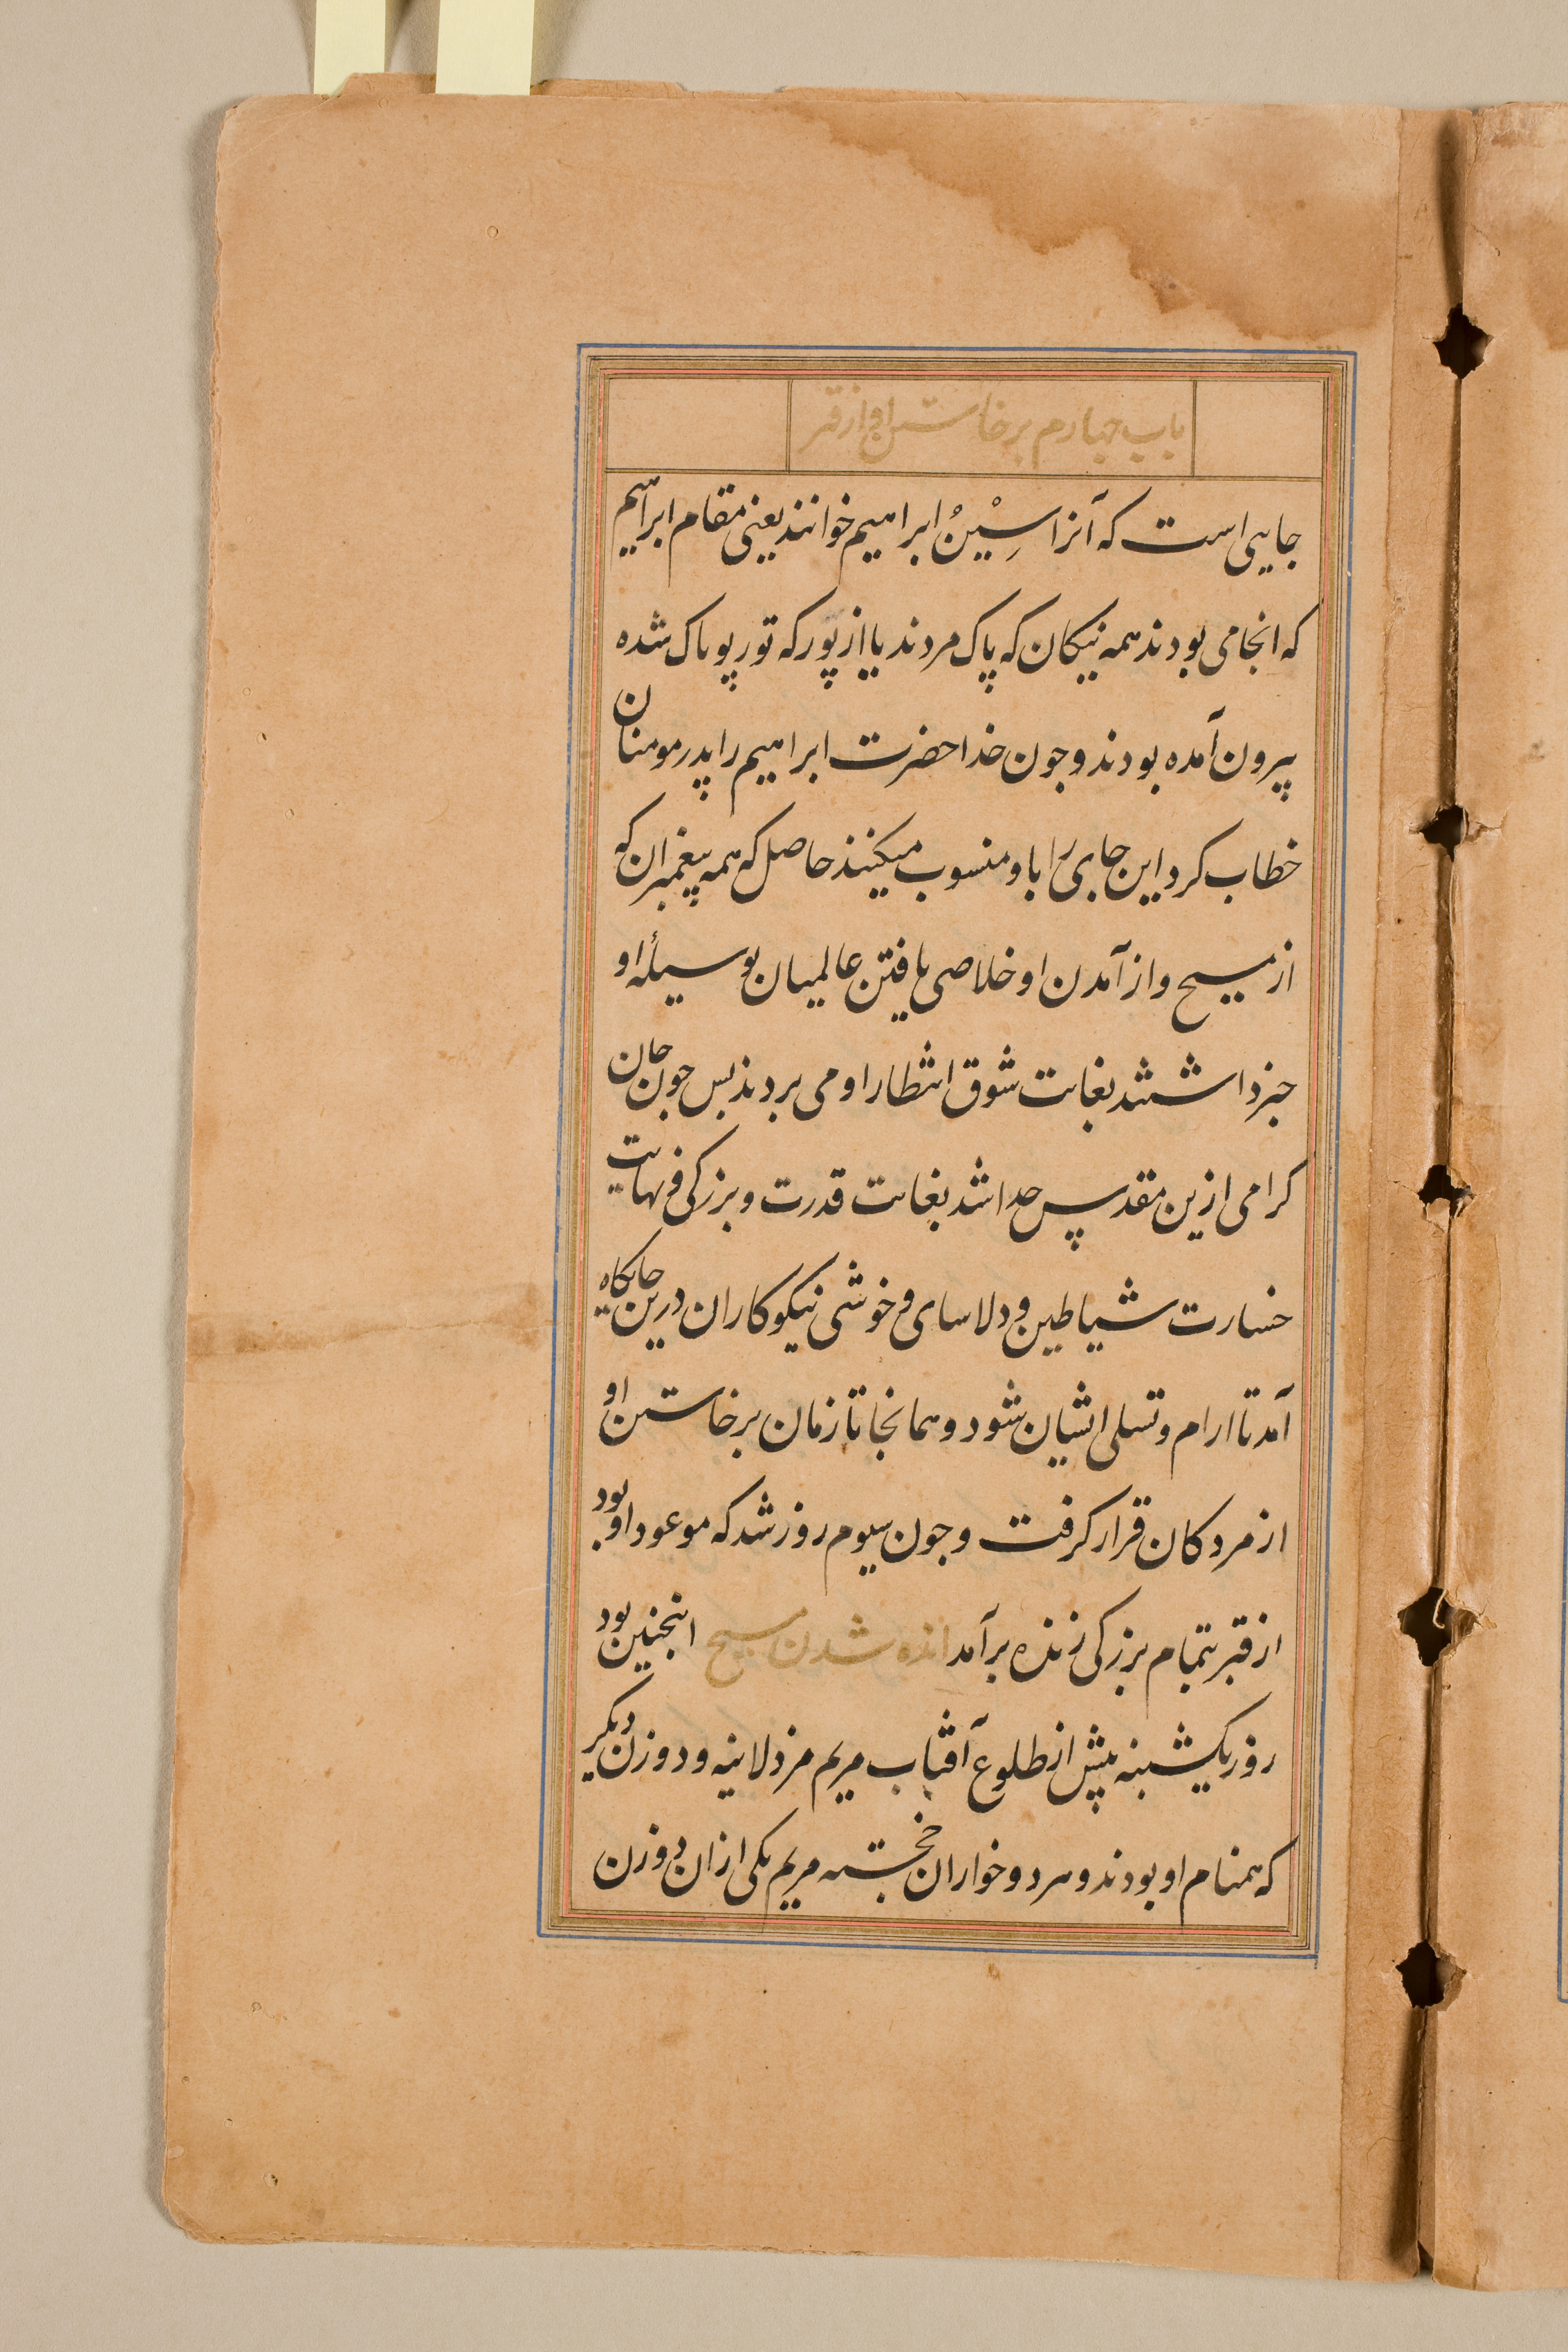 باب چهارم برخاستن او از قبر
جایی است که آنرا سِیْنُ ابراهیم خوانند یعنی مقام ابراهیم
که انجا می بودند همه نیکان که پاک مردند یا از پور که تور پو پاک شده
بیرون آمده بودند و چون خدا حضرت ابراهیم را پدر مومنان
خطاب کرد این جای را باو منسوب میکنند حاصل که همه پیغمبران که
از مسیح و از آمدن او خلاصی یافتن عالمیان بوسیلهٔ او
خبر داشتند بغایت شوق انتظار او می بردند پس چون جان
کرامی ازین مقدس جدا شد بغایت قدرت و بزرکی و نهایت
خسارت شیاطین و دلاسای و خوشی نیکوکاران درین جایکاه
آمد تا ارام و تسلی ایشان شود و همانجا تا زمان برخاستن او
از مردکان قرار کرفت و چون سیوم روز شد که موعود او بود
از قبر بتمام بزرکی زنده برآمد زنده شدن مسیح اینچنین بود
روز یکشنبه پیش از طلوع آفتاب مریم مزدلانیه و دو زن دیکر
که همنام او بودند و هر دو خواران خجسته مریم یکی ازان دو زن